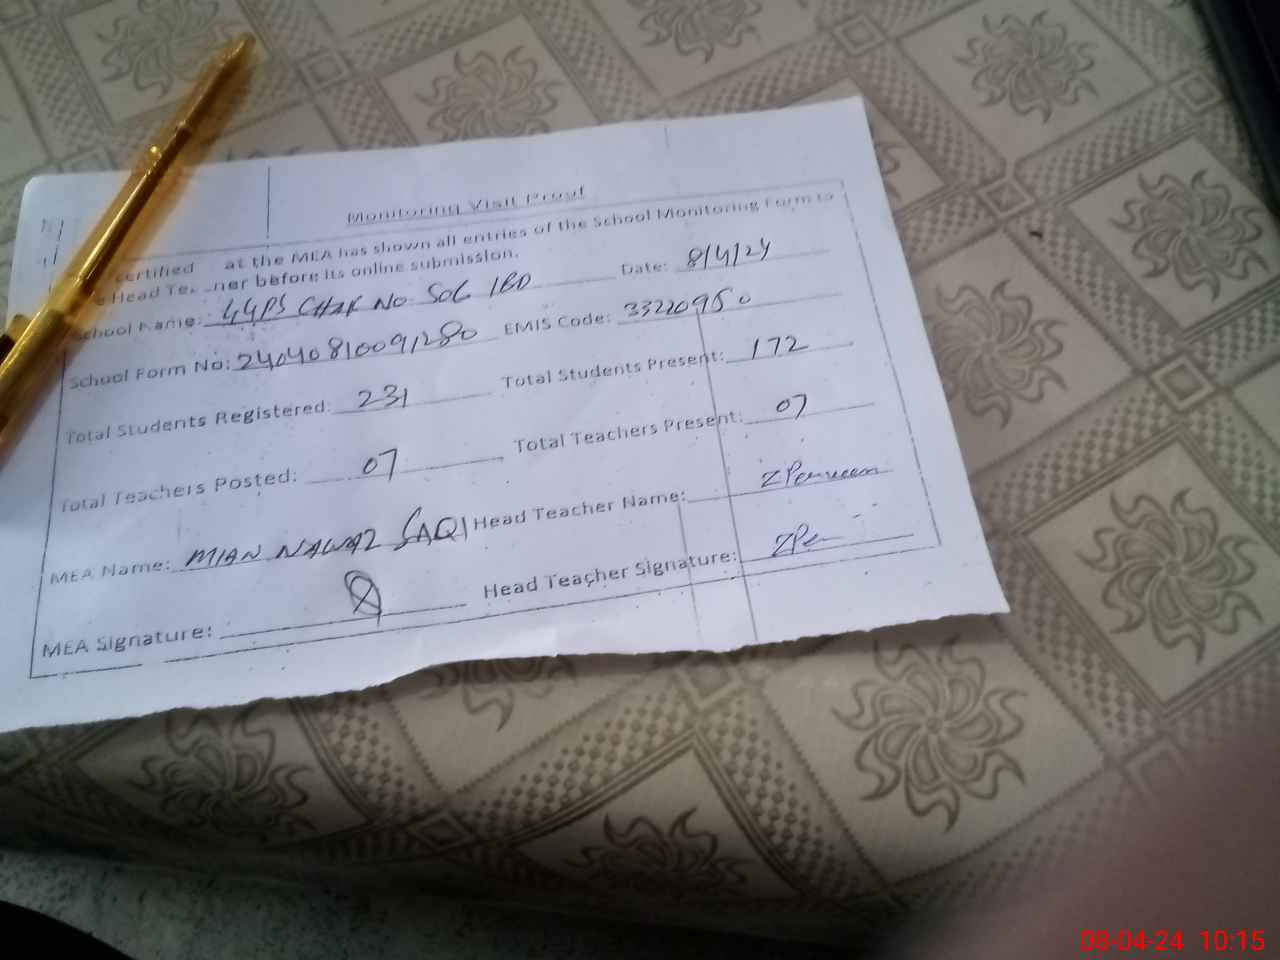 Monitoring Visit Proof
certified at the MEA has shown all entries of the School Monitoring Form to
Head before its online submission.
School Name: GGPS CHAK NO 506 1BD Date: 8/4/24
School Form No: 24040810091280 EMIS Code: 33220950
Total Students Registered: 231 Total Students Present: 172
Total Teachers Posted: 07 Total Teachers Present: 07
MEA Name: MIAN NAWAZ SAQI Head Teacher Name: Z Perveen
MEA Signature: Head Teacher Signature: ZPer
08-04-24 10:15